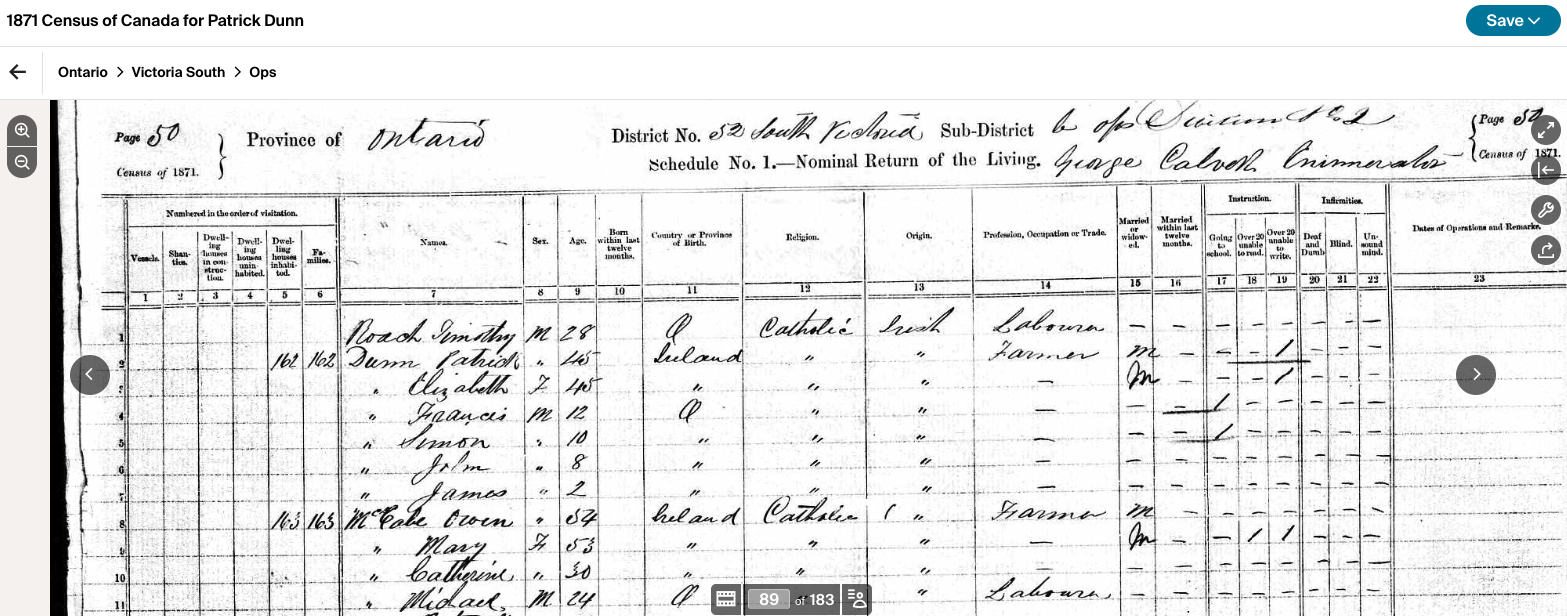 1871 Census of Canada for Patrick Dunn
Save
Ontario > Victoria South > Ops
Page 50 Province of Ontario District No. 52 South Victoria Sub-District b ops Division No. 2 Page 50
Census of 1871. Schedule No. 1.—Nominal Return of the Living. George Calvert Enumerator Census of 1871.
Numbered in the order of visitation.
Vessels. Shanties. Dwelling houses in construction. Dwelling houses uninhabited. Dwelling houses inhabited. Families. Names. Sex. Age. Born within last twelve months. Country or Province of Birth. Religion. Origin. Profession, Occupation or Trade. Married or widowed. Married within last twelve months. Instruction. Going to school. Over 20 unable to read. Over 20 unable to write. Infirmities. Deaf and Dumb Blind. Unsound mind. Dates of Operations and Remarks.
1 2 3 4 5 6 7 8 9 10 11 12 13 14 15 16 17 18 19 20 21 22 23
1 Roach Timothy M 28 O Catholic Irish Labourer — — — — — — — —
2 162 162 Dunn Patrick " 45 Ireland " " Farmer M — — — 1 — — —
3 " Elizabeth F 45 " " " — M — — — 1 — — —
4 " Francis M 12 O " " — — — 1 — — — — —
5 " Simon " 10 " " " — — — 1 — — — — —
6 " John " 8 " " " — — — — — — — — —
7 " James " 2 " " " — — — — — — — — —
8 163 163 McCabe Owen " 54 Ireland Catholic " Farmer M — — — — — — —
9 " Mary F 53 " " " — M — — 1 1 — — —
10 " Catherine " 30 " " " — — — — — — — — —
11 " Michael M 24 O " Labourer — — — — — — — —
89 of 183